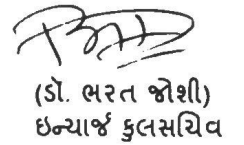 (ડૉ. ભરત જોશી)
ઇન્ચાર્જ કુલસચિવ